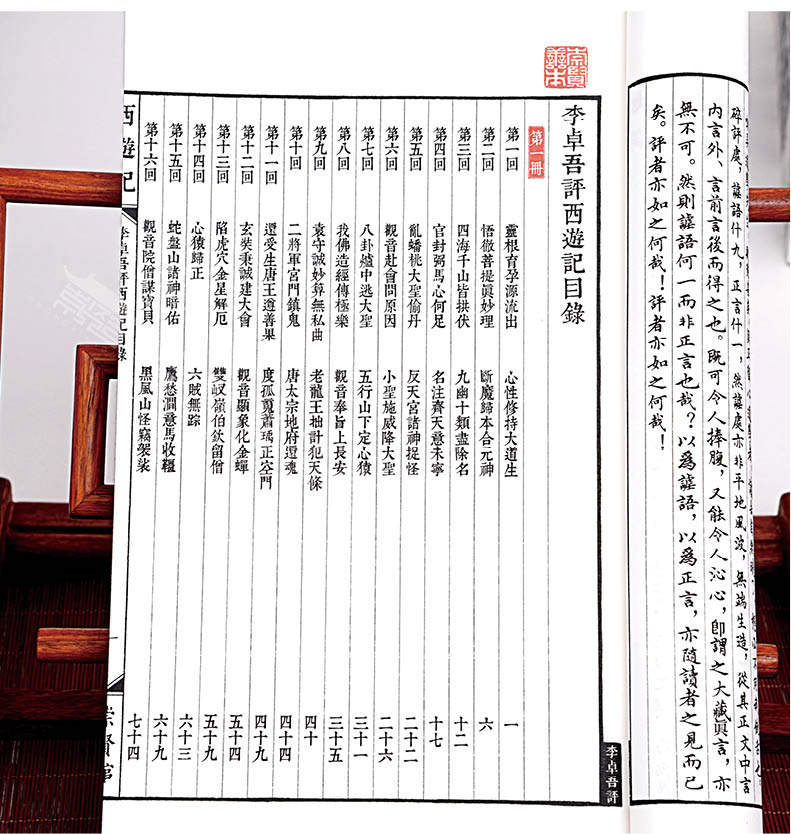 碎評處，謔語什九，正言什一，然謔處亦非平地風波，無端生造，從其正文中言
內言外、言前言後而得之也。既可令人捧腹，又能令人沁心，卽謂之大藏眞言，亦
無不可。然則謔語何一而非正言也哉？以爲謔語，以爲正言，亦隨讀者之見而已
矣。評者亦如之何哉！評者亦如之何哉！
李卓吾評
崇賢善本
李卓吾評西遊記目錄
第一冊
第一回 靈根育孕源流出 心性修持大道生 一
第二回 悟徹菩提眞妙理 斷魔歸本合元神 六
第三回 四海千山皆拱伏 九幽十類盡除名 十二
第四回 官封弼馬心何足 名注齊天意未寧 十七
第五回 亂蟠桃大聖偷丹 反天宮諸神捉怪 二十二
第六回 觀音赴會問原因 小聖施威降大聖 二十六
第七回 八卦爐中逃大聖 五行山下定心猿 三十一
第八回 我佛造經傳極樂 觀音奉旨上長安 三十五
第九回 袁守誠妙算無私曲 老龍王拙計犯天條 四十
第十回 二將軍宮門鎮鬼 唐太宗地府還魂 四十四
第十一回 還受生唐王遵善果 度孤䰟蕭瑀正空門 四十九
第十二回 玄奘秉誠建大會 觀音顯象化金蟬 五十四
第十三回 陷虎穴金星解厄 雙叉嶺伯欽留僧 五十九
第十四回 心猿歸正 六賊無踪 六十三
第十五回 蛇盤山諸神暗佑 鷹愁澗意馬收韁 六十九
第十六回 觀音院僧謀寶貝 黑風山怪竊袈裟 七十四
西遊記
李卓吾評西遊記目錄
一
崇賢館